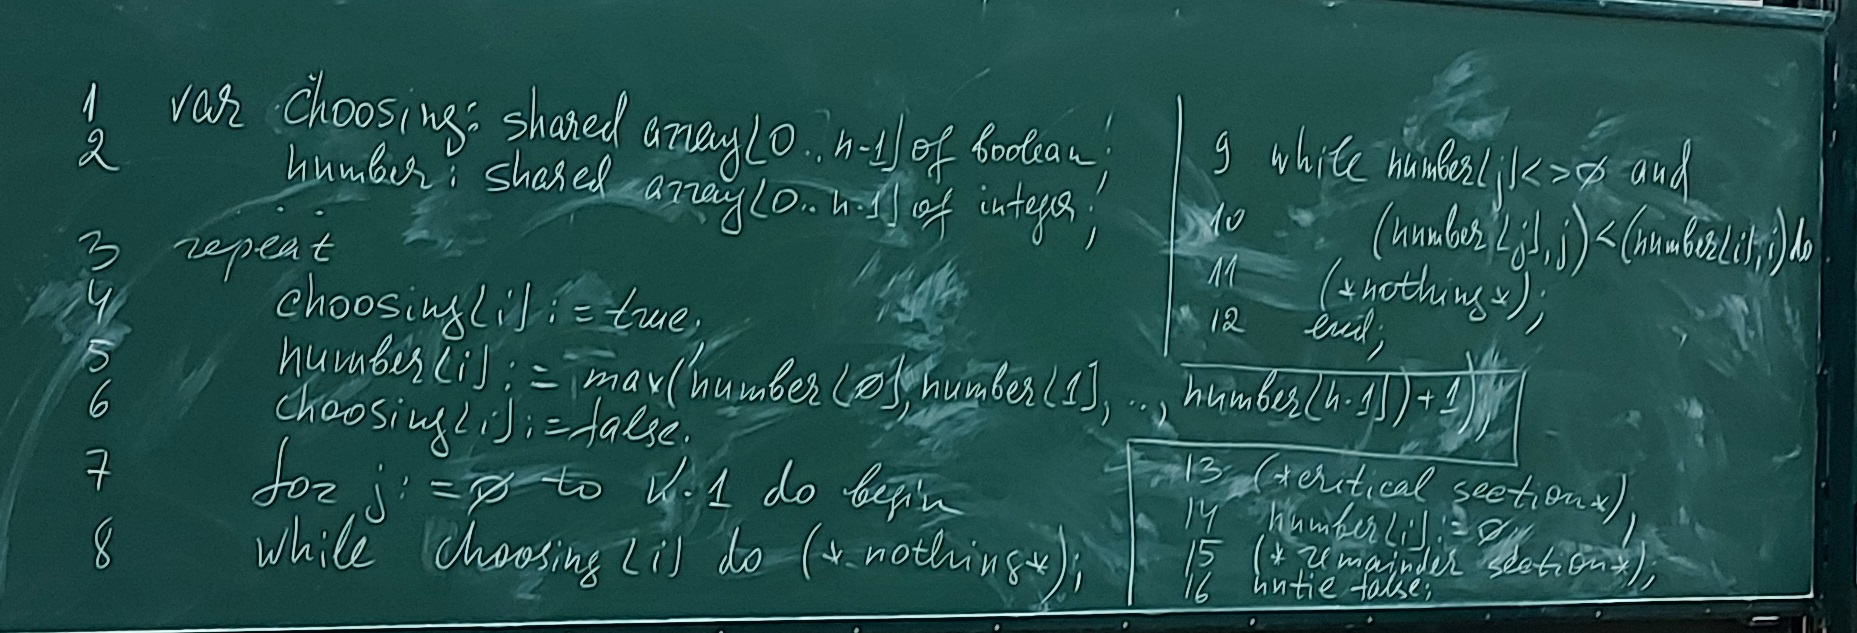 1 var choosing: shared array[0..n-1] of boolean;
2 number: shared array[0..n-1] of integer;
...
3 repeat
4 choosing[i] := true;
5 number[i] := max(number[ø], number[1], .., number[n-1]) + 1);
6 choosing[i] := false;
7 for j := ø to n-1 do begin
8 while choosing[i] do (*nothing*);
9 while number[j] <> ø and
10 (number[j], j) < (number[i], i) do
11 (*nothing*);
12 end;
13 (*critical section*);
14 number[i] := ø;
15 (*remainder section*);
16 untie false;